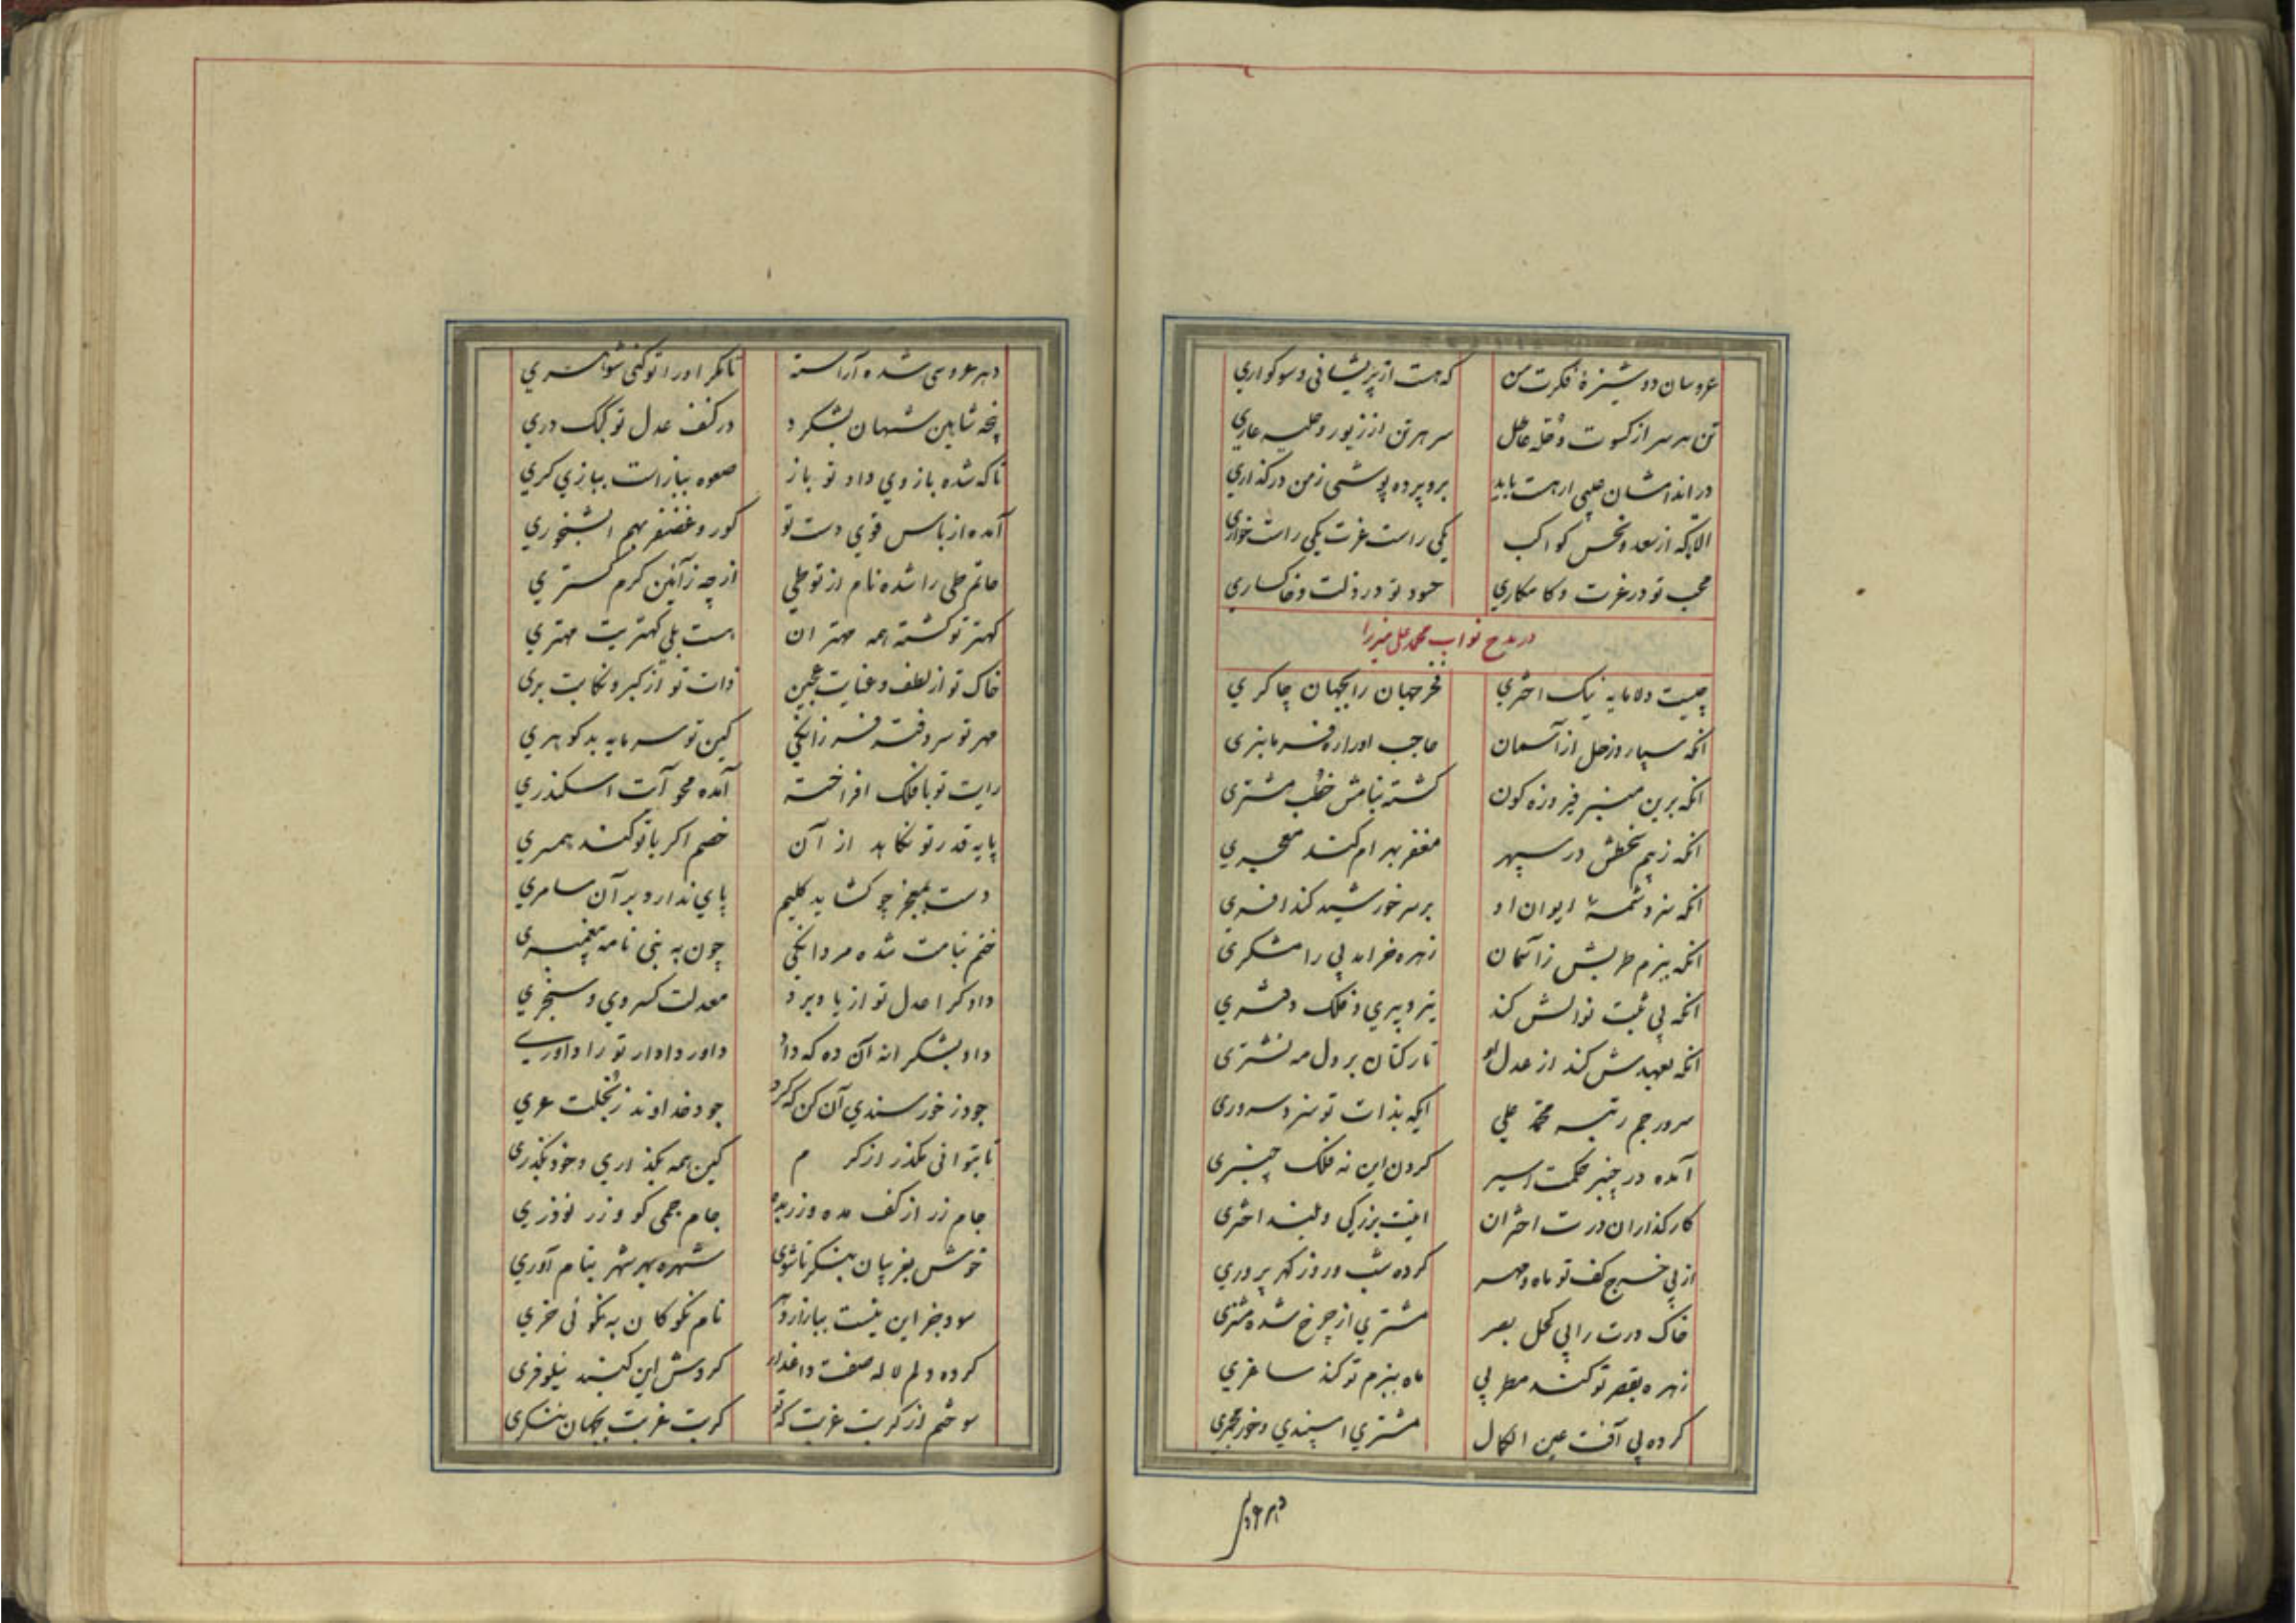 عروسان دوشیزهٔ فکرت من که هست از پریشانی و سوکواری
تن هر سر از کسوت و حله عاطل سر هر تن از زیور و حلیه عاری
در اندامشان عیبی ار هست باید برو پرده پوشی ز من درگذاری
الا تا که از سعد و نحس کواکب یکی راست عزت یکی راست خواری
محب تو در عزت و کامکاری حسود تو در ذلت و خاکساری
در مدح نواب محمد علی میرزا
چیست دلا مایه نیک اختری فخر جهان را بجهان چاکری
انکه سپارد زحل از آسمان حاجب اورا ره فرمانبری
انکه برین منبر فیروزه کون کشته بنامش خطب مشتری
انکه ز بیم سخطش در سپهر مغفر بهرام کند معجری
انکه سزد شمسهٔ ایوان او بر سر خورشید کند افسری
انکه ببزم طربش ز آسمان زهره خرامد پی رامشکری
انکه پی ثبت نوالش کند تیر دبیری و فلک دفتری
انکه بعهدش کند از عدل او تار کتان بر دل مه نشتری
سرور جم رتبه محمد علی ایکه بذات تو سزد سروری
آمده در چنبر حکمت اسیر کردن این نه فلک چنبری
کارکذاران درت اختران اینت بزرکی و بلند اختری
از پی خرج کف تو ماه و مهر کرده شب و روز کهر پروری
خاک درت را پی کحل بصر مشتری از چرخ شده مشتری
زهره بقصر تو کند مطربی ماه ببزم تو کند ساغری
کرده پی آفت عین الکمال مشتری اسپندی و خور مجمری
دهر عروسی
دهر عروسی شده آراسته تا مکر اورا تو کنی شوهری
پنجه شاهین شهان بشکرد در کنف عدل تو کبک دری
تا که شده بازوی داد تو باز صعوه بباز است ببازی کری
آمده از باس قوی دست تو کور و غضنفر بهم ابشخوری
حاتم طی را شده نام از تو طی ازچه ز آئین کرم کستری
کهتر تو کشته همه مهتران هست بلی کهتریت مهتری
خاک تو از لطف و عنایت عجین ذات تو از کبر و نکایت بری
مهر تو سر دفتر فرزانکی کین تو سرمایه بدکوهری
رایت تو با فلک افراخته آمده محو آیت اسکندری
پایه قدر تو نکاهد از آن خصم اکر با تو کند همسری
دست بمعجز چو کشاید کلیم پای ندارد بر آن سامری
ختم بنامت شده مردانکی چون به نبی نامه پیغمبری
دادکرا عدل تو از یاد برد معدلت کسروی و سنجری
داد بشکرانه آن ده که داد داور دادار تو را داوری
جود ز خورسندی آن کن که کرد جود خداوند ز بخلت عری
تا بتوانی مکذر از کرم کین همه بکذاری و خود بکذری
جام زر از کف مده و زر بده جام جمی کو و زر نوذری
خوش بغریبان بنکر تا شوی شهره بهر شهر بنام آوری
سود جز این نیست ببازار دهر نام نکو کان به نکوئی خری
کرده دلم لاله صفت داغدار کردش این کنبد نیلوفری
سوختم از کربت غربت که تو کربت غربت بجهان ننکری